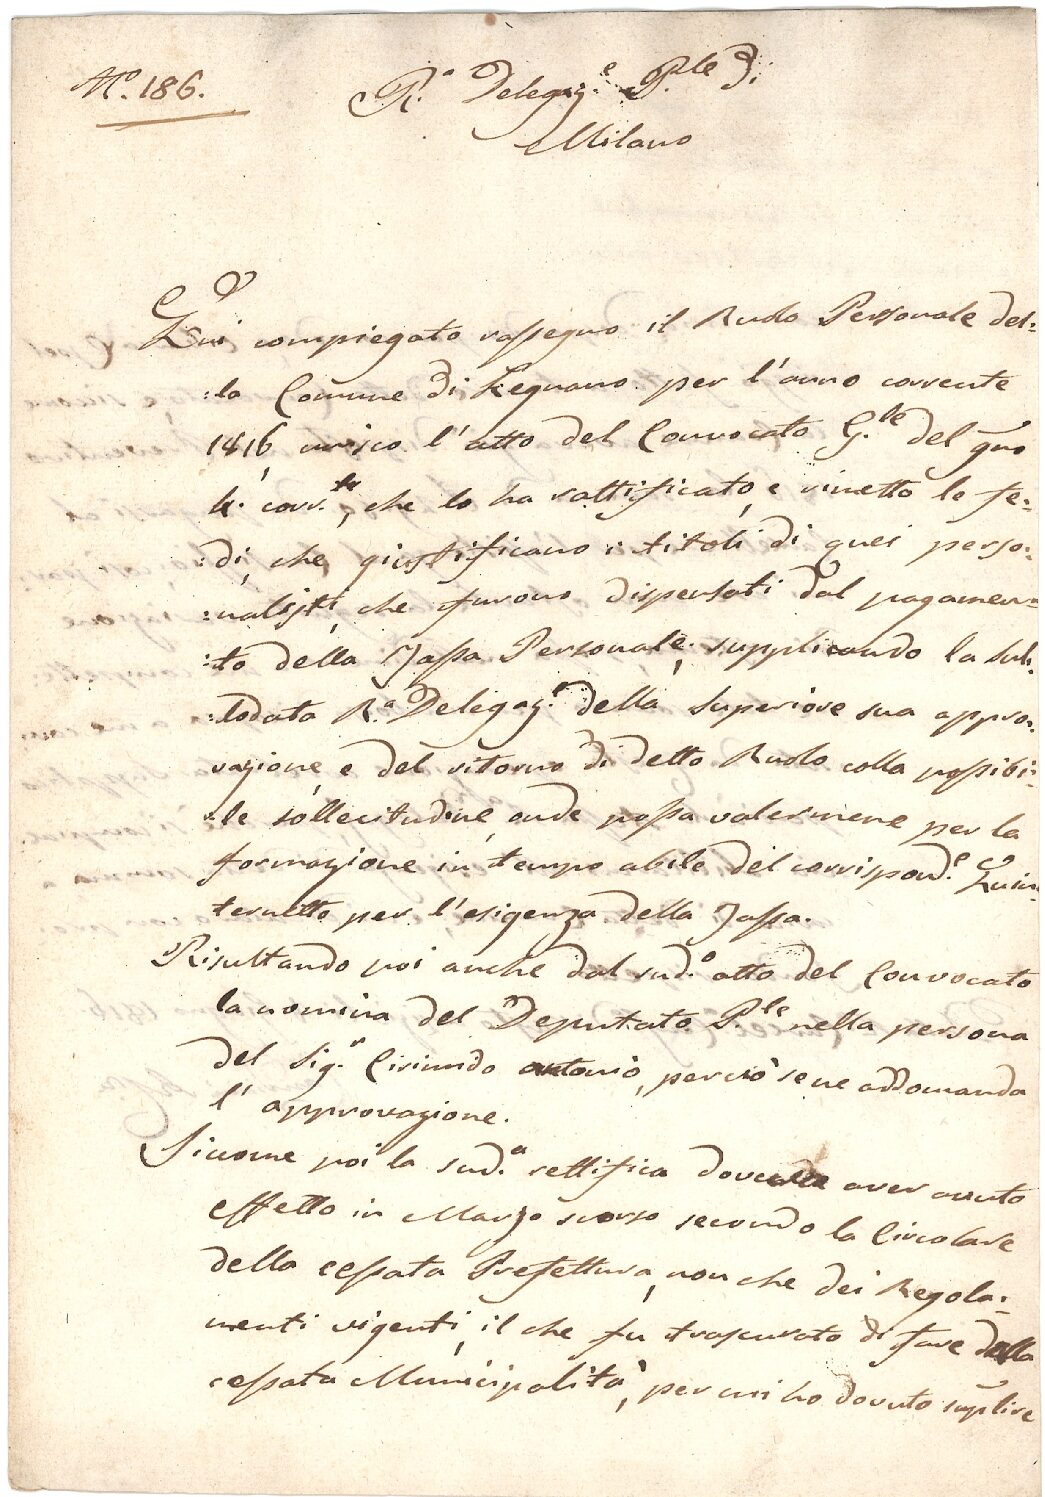 N.º 186.
R.ª Delegaz.e P.le di
Milano
Qui compiegato rassegno il Ruolo Personale del-
:la Comune di Legnano per l'anno corrente
1816, unisco l'atto del Convocato G.le del gno
4. corr.te, che lo ha rattificato, e rimetto le fe-
:di, che giustificano i titoli di quei perso:
:nalisti, che furono dispensati dal pagamen-
:to della Tassa Personale, supplicando la sul:
:lodata R.ª Delegaz.e della superiore sua appro:
vazione, e del ritorno di detto Ruolo colla possibi:
:le sollecitudine, onde possa valermene per la
formazione in tempo abile del corrispond.e Quin-
ternetto per l'esigenza della Tassa.
Risultando poi anche dal sud.º atto del Convocato
la nomina del Deputato P.le nella persona
del Sig.r Antonio, perciò se ne addomanda
l'approvazione.
Siccome poi la sud.ª rettifica dovea aver avuto
effetto in Marzo scorso secondo la Circolare
della cessata Prefettura, non che dei Regola:
menti vigenti, il che fu trascurato di fare dalla
cessata Municipalità, per cui ho dovuto suplire